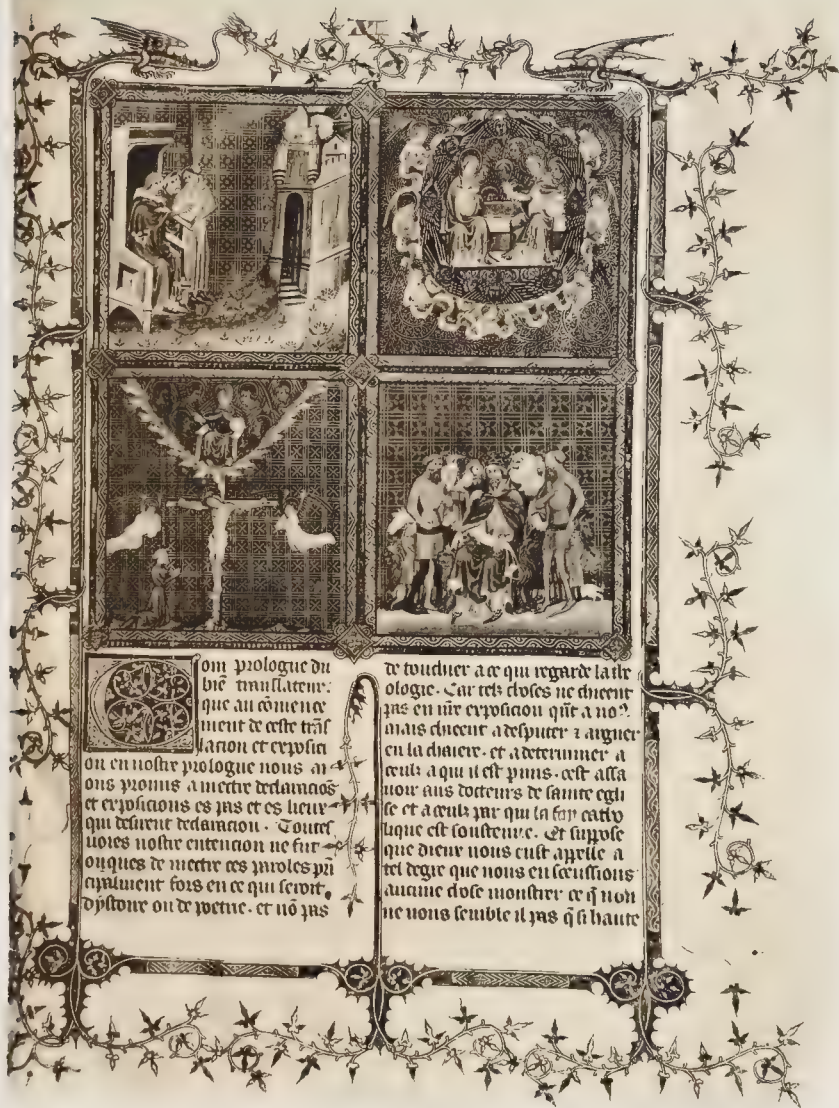 XI
Com prologue du
bie᷒ translateur.
que au co᷒me᷒ce
ment de ceste tra᷒s
lacion et expositi
on en nostre prologue nous av
ons promis a mectre declaracio᷒s
et expositions es pas et es lieux
qui desirent declaracion. Toutes
voies nostre entencion ne fut
onques de mectre ces paroles pri᷒
cipalment fors en ce qui seroit
dystoire ou de poetrie. et no᷒ pas
de touchier a ce qui regarde la the
ologie. Car telz choses ne chieent
pas en n̄re exposicion q̄nt a no᷒.
mais chieent a desputer ⁊ arguer
en la chaiere. et a determiner a
ceulz a qui il est permis. cest assa
voir aus docteurs de sainte egli
se et a ceulz par qui la foy catho
lique est soustenue. Et suppose
que dieux nous eust appelle a
tel degre que nous en sceussions
aucune chose monstrer ce q̄ non
ne nous semble il pas q̄ si haute